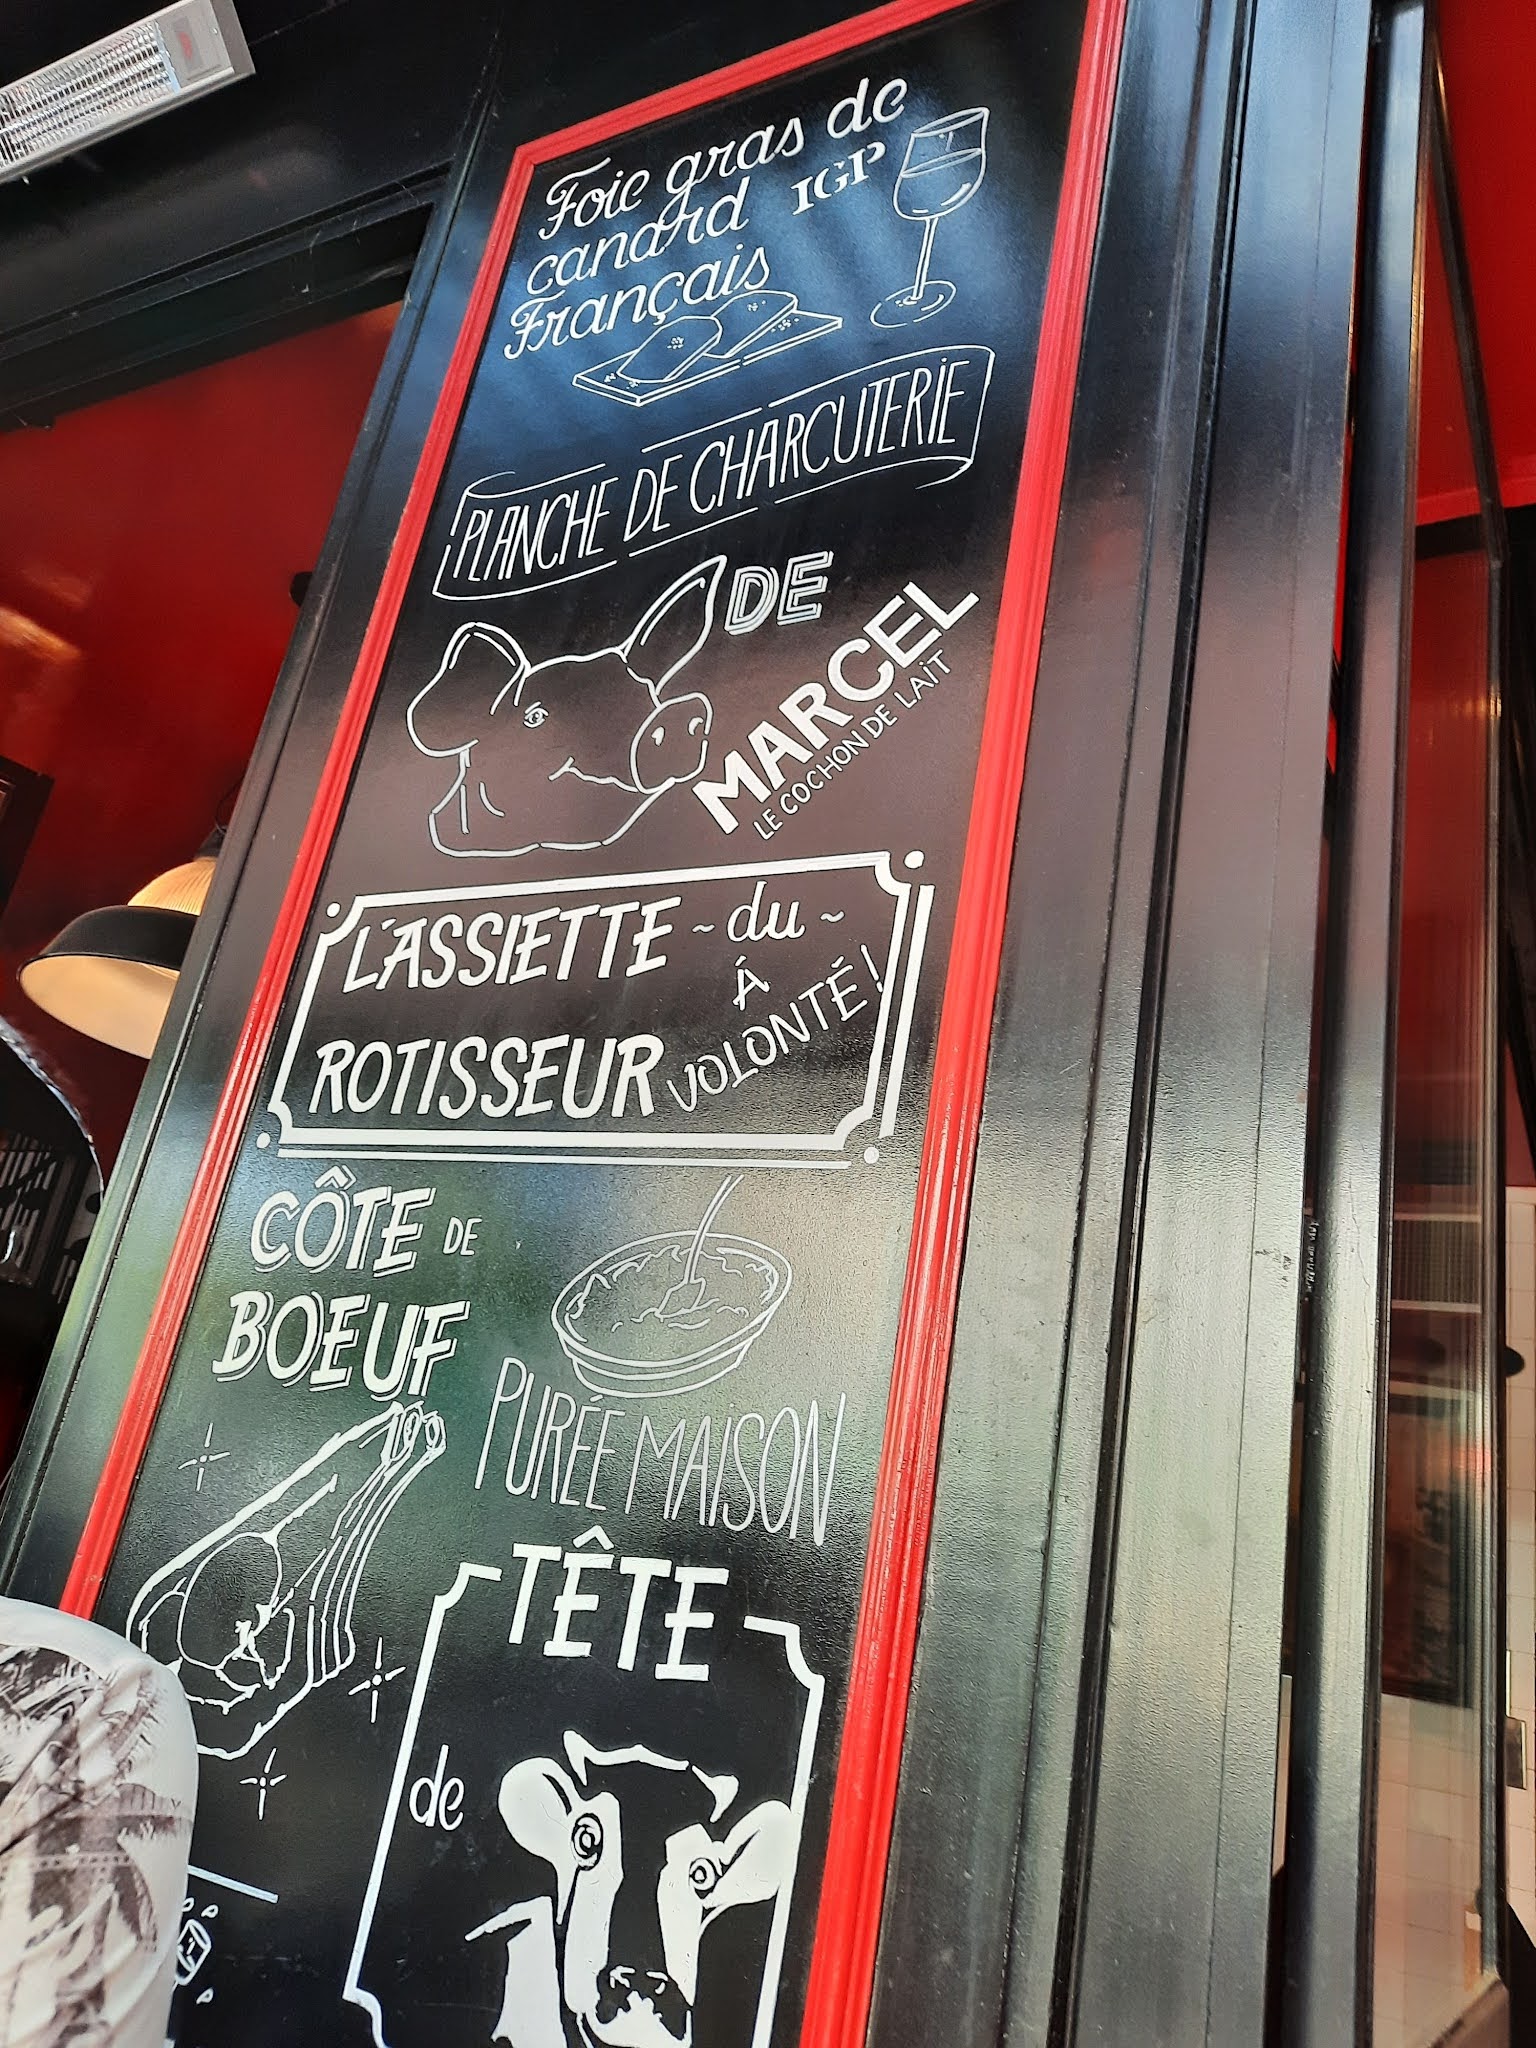 Foie gras de
canard IGP
Français
PLANCHE DE CHARCUTERIE
DE
MARCEL
LE COCHON DE LAIT
L'ASSIETTE ~ du ~
ROTISSEUR
À
VOLONTÉ !
CÔTE DE
BOEUF
PURÉE MAISON
TÊTE
de